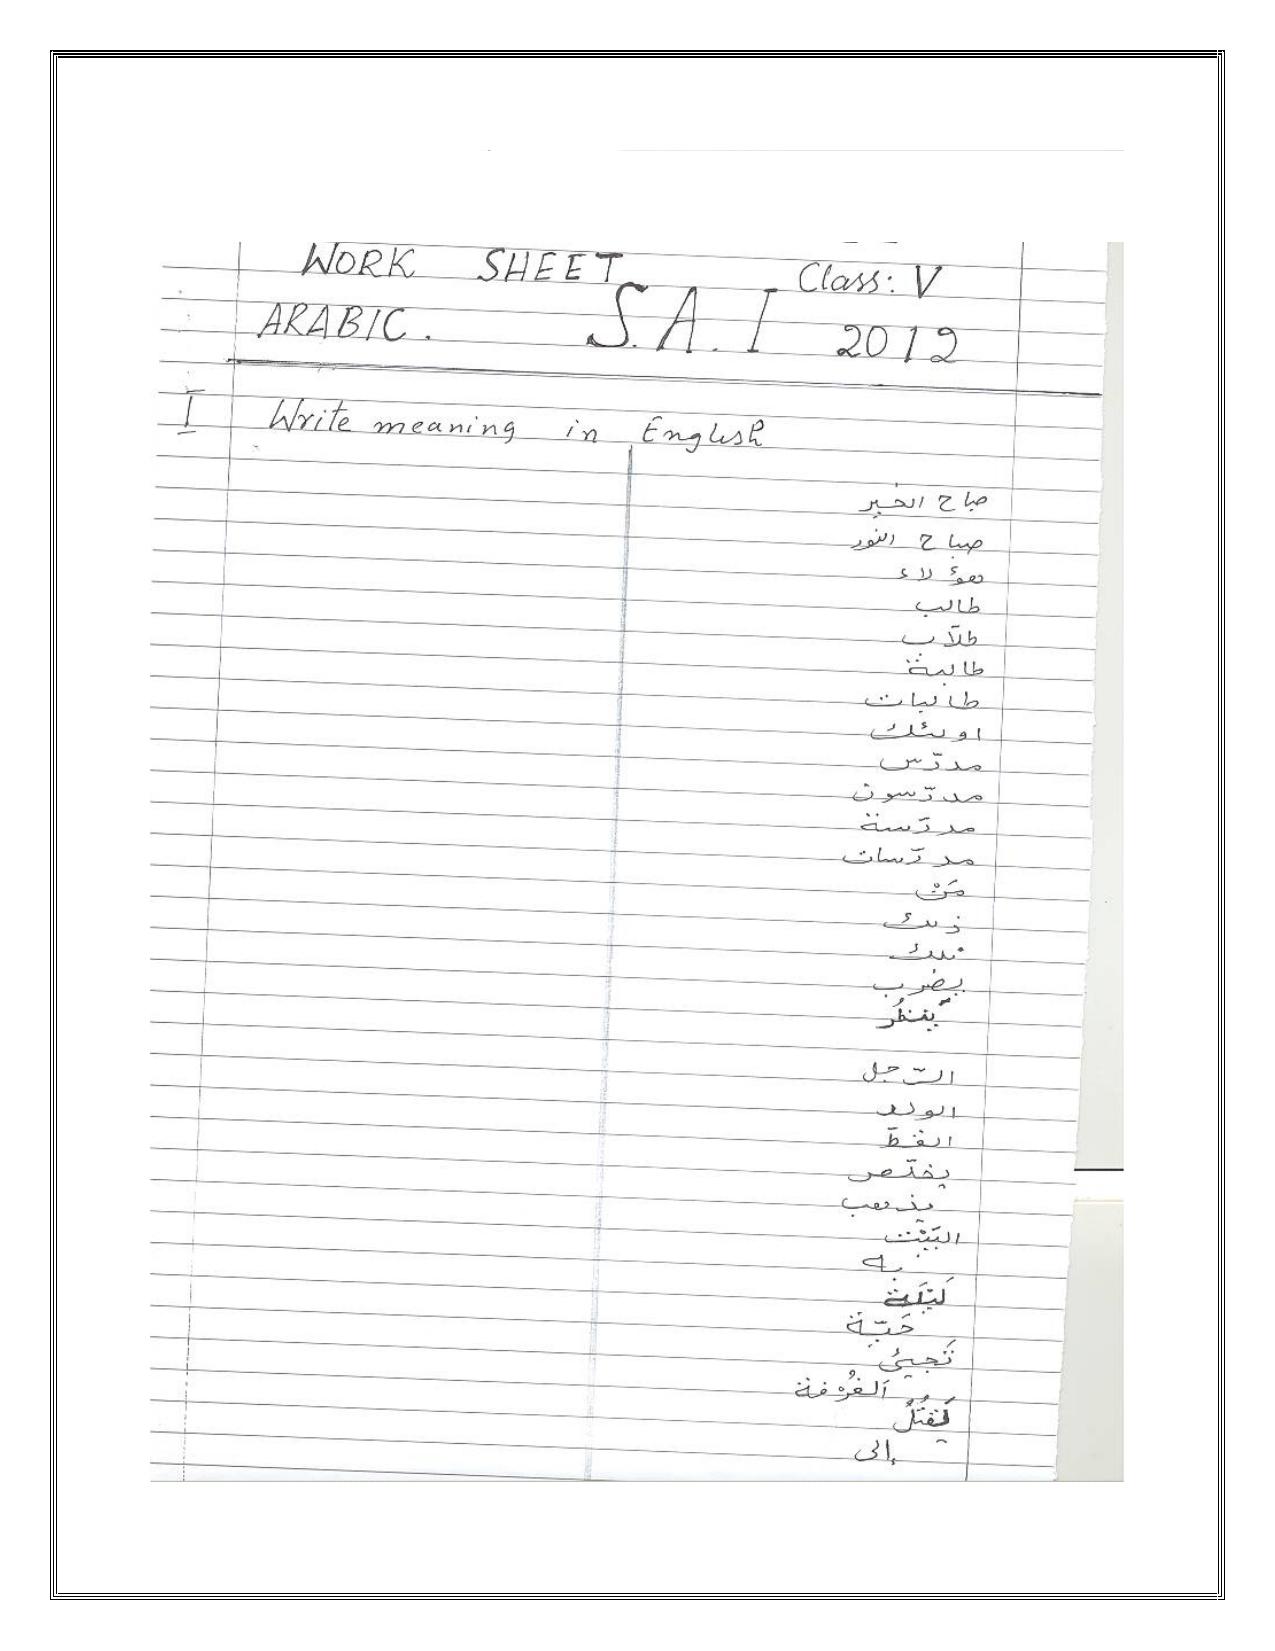 WORK SHEET Class: V
ARABIC. S.A.I 2012
I Write meaning in English
صباح الخير
صباح النور
هؤلاء
طالب
طلّاب
طالبة
طالبات
اولئك
مدرّس
مدرّسون
مدرّسة
مدرّسات
مَنْ
ذلك
تلك
يضرب
يَنظُر
الرّجل
الولد
القطّ
يذهب
البَيْت
به
لَيْلَة
تَجيئُ
اَلغُرْفة
يَقتُلُ
إلى